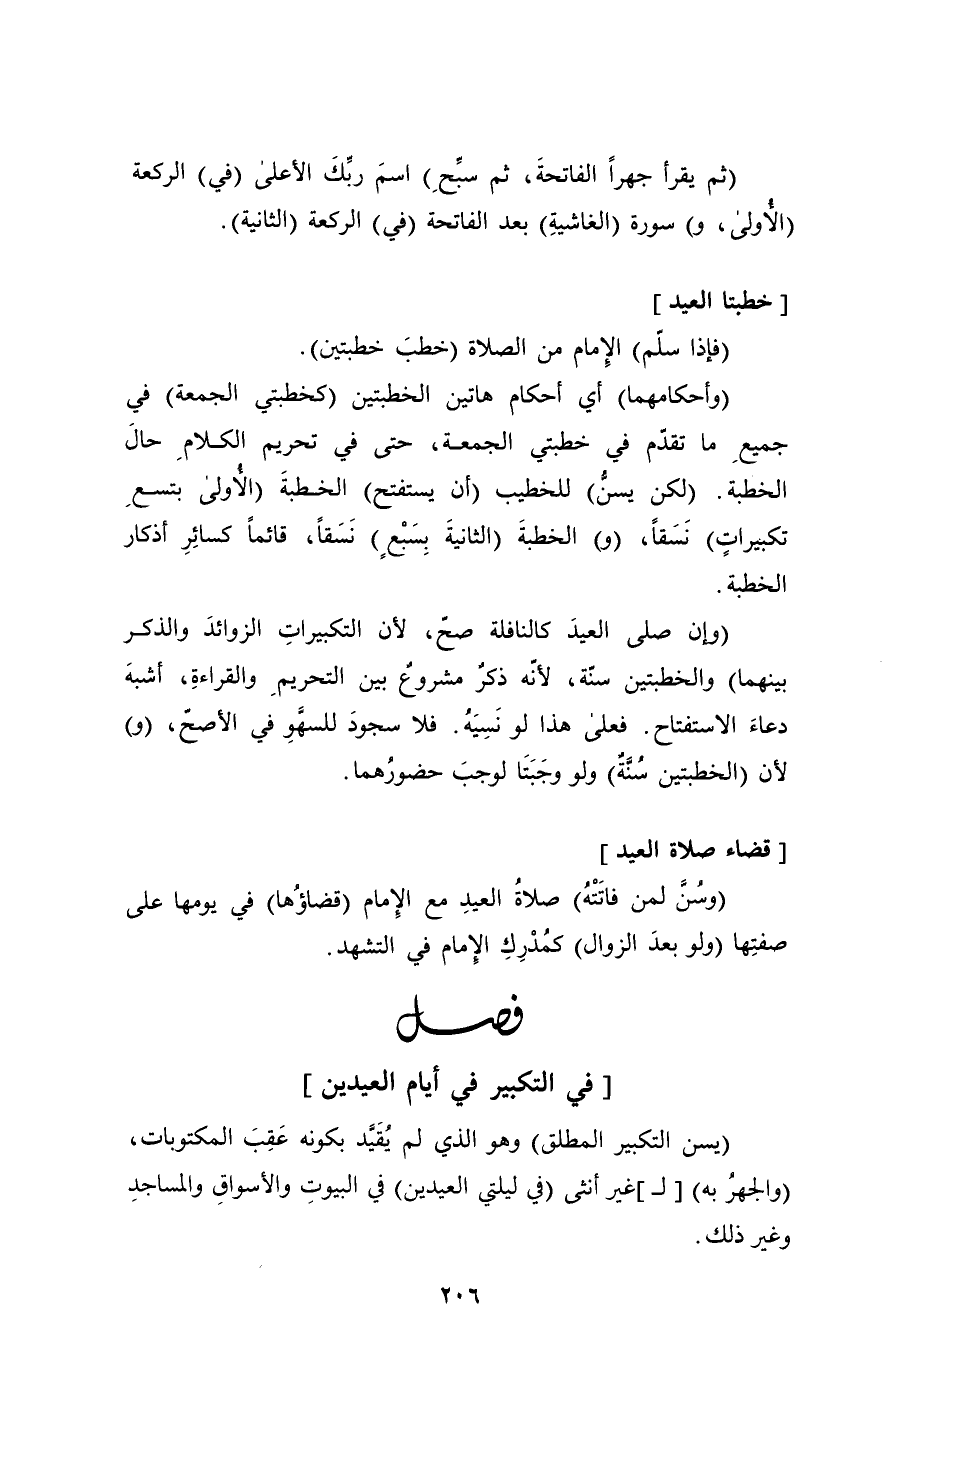 (ثم يقرأ جهراً الفاتحةَ، ثم سبِّحِ) اسمَ ربِّكَ الأعلىٰ (في) الركعة
(الأُولىٰ، و) سورة (الغاشيةِ) بعد الفاتحة (في) الركعة (الثانية).
[ خطبتا العيد ]
(فإذا سلّم) الإِمام من الصلاة (خطبَ خطبتين).
(وأحكامهما) أي أحكام هاتين الخطبتين (كخطبتي الجمعة) في
جميعِ ما تقدّم في خطبتي الجمعة، حتى في تحريم الكلامِ حالَ
الخطبة. (لكن يسنُّ) للخطيب (أن يستفتح) الخطبةَ (الأُولىٰ بتسعِ
تكبيراتٍ) نَسَقاً، (و) الخطبةَ (الثانيةَ بِسَبْعٍ) نَسَقاً، قائماً كسائِرِ أذكار
الخطبة.
(وإن صلى العيدَ كالنافلة صحّ، لأن التكبيراتِ الزوائدَ والذكر
بينهما) والخطبتين سنّة، لأنّه ذكرٌ مشروعٌ بين التحريمِ والقراءةِ، أشبهَ
دعاءَ الاستفتاح. فعلىٰ هذا لو نَسِيَهُ. فلا سجودَ للسهَّوِ في الأصحّ، (و)
لأن (الخطبتين سُنَّةٌ) ولو وجَبَتَا لوجبَ حضورُهما.
[ قضاء صلاة العيد ]
(وسُنَّ لمن فاتَتْهُ) صلاةُ العيدِ مع الإِمام (قضاؤُها) في يومها على
صفتِها (ولو بعدَ الزوال) كمُدْرِكِ الإِمام في التشهد.
فصل
[ في التكبير في أيام العيدين ]
(يسن التكبير المطلق) وهو الذي لم يُقَيَّد بكونه عَقِبَ المكتوبات،
(والجهرُ به) [ لـ ]غير أنثى (في ليلتي العيدين) في البيوتِ والأسواقِ والمساجدِ
وغير ذلك.
٢٠٦